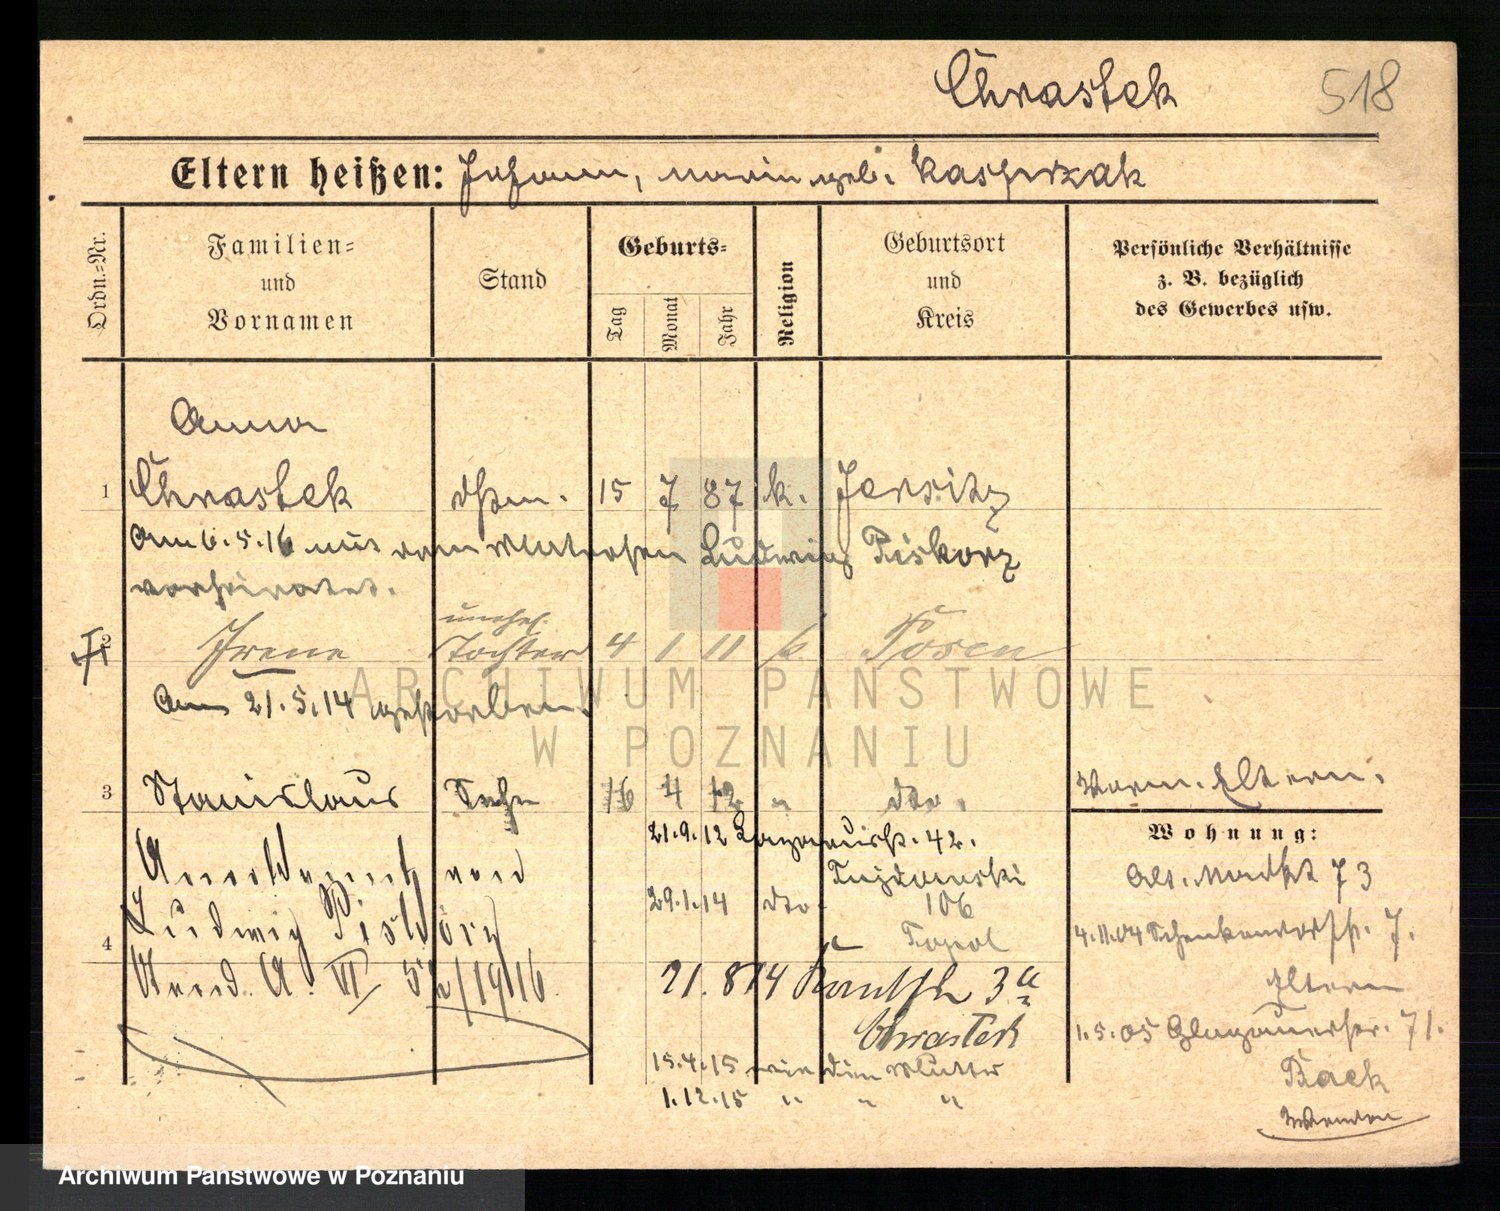 Chrastek 518
Eltern heißen: Johann, Marin geb. Kasprzak
Ordn.=Nr.
Familien=
und
Vornamen
Stand
Geburts=
Tag
Monat
Jahr
Religion
Geburtsort
und
Kreis
Persönliche Verhältnisse
z. B. bezüglich
des Gewerbes usw.
Anna
1 Chrastek 15 7 87 k. Jersitz
Am 6.5.16 mit dem Matrosen Ludwig Piskorz
verheiratet.
unehel.
2 Irene Tochter 4 1 11 k. Posen
Am 21.5.14 gestorben.
3 Stanislaus Sohn 16 4 12 " dto.
Vorm. Eltern.
Wohnung:
21.9.12 Lazarusstr. 42.
Alt. Markt 73
Ludwig Piskorz
29.1.14 dto. 106
4.11.04 Schenkendorfstr. 7.
4
A. VI 52/1916
21.8 14 3a
Eltern
Chrastek
1.5.05 Glogauerstr. 71.
15.4.15 wie die Mutter
1.12.15 " " "
ARCHIWUM PAŃSTWOWE
W POZNANIU
Archiwum Państwowe w Poznaniu